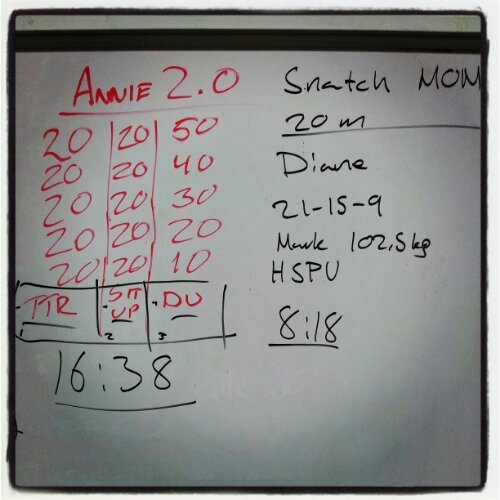 ANNIE 2.0
20 20 50
20 20 40
20 20 30
20 20 20
20 20 10
TTR SIT UP DU
2 3
16:38
Snatch MOM
20 m
Diane
21-15-9
Mark 102,5kg
HSPU
8:18